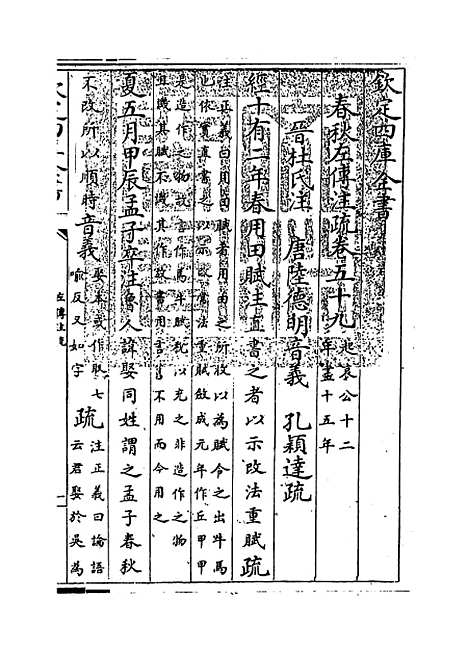 欽定四庫全書
春秋左傳注疏卷五十九
起哀公十二
年盡十五年
晉杜氏注 唐陸德明音義 孔穎達疏
經十有二年春用田賦注直書之者以示改法重賦疏
注正義曰用田賦者用田之所收以為賦令之出牛馬
也依實直書之以示改常法重賦斂成元年作丘甲甲
是造作之物故言作馬牛賦稅以充之非造作之物
且譏其賦不譏其作故書用言
不用而今用之
夏五月甲辰孟子卒注魯人諱娶同姓謂之孟子春秋
不改所以順時音義
娶本或作取七
喻反又如字
疏
注正義曰論語
云君娶於吳為
左傳注疏
一